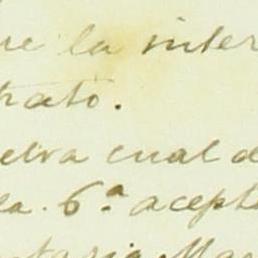 re la inter
trato.
elva cual d
la. 6.ª acept